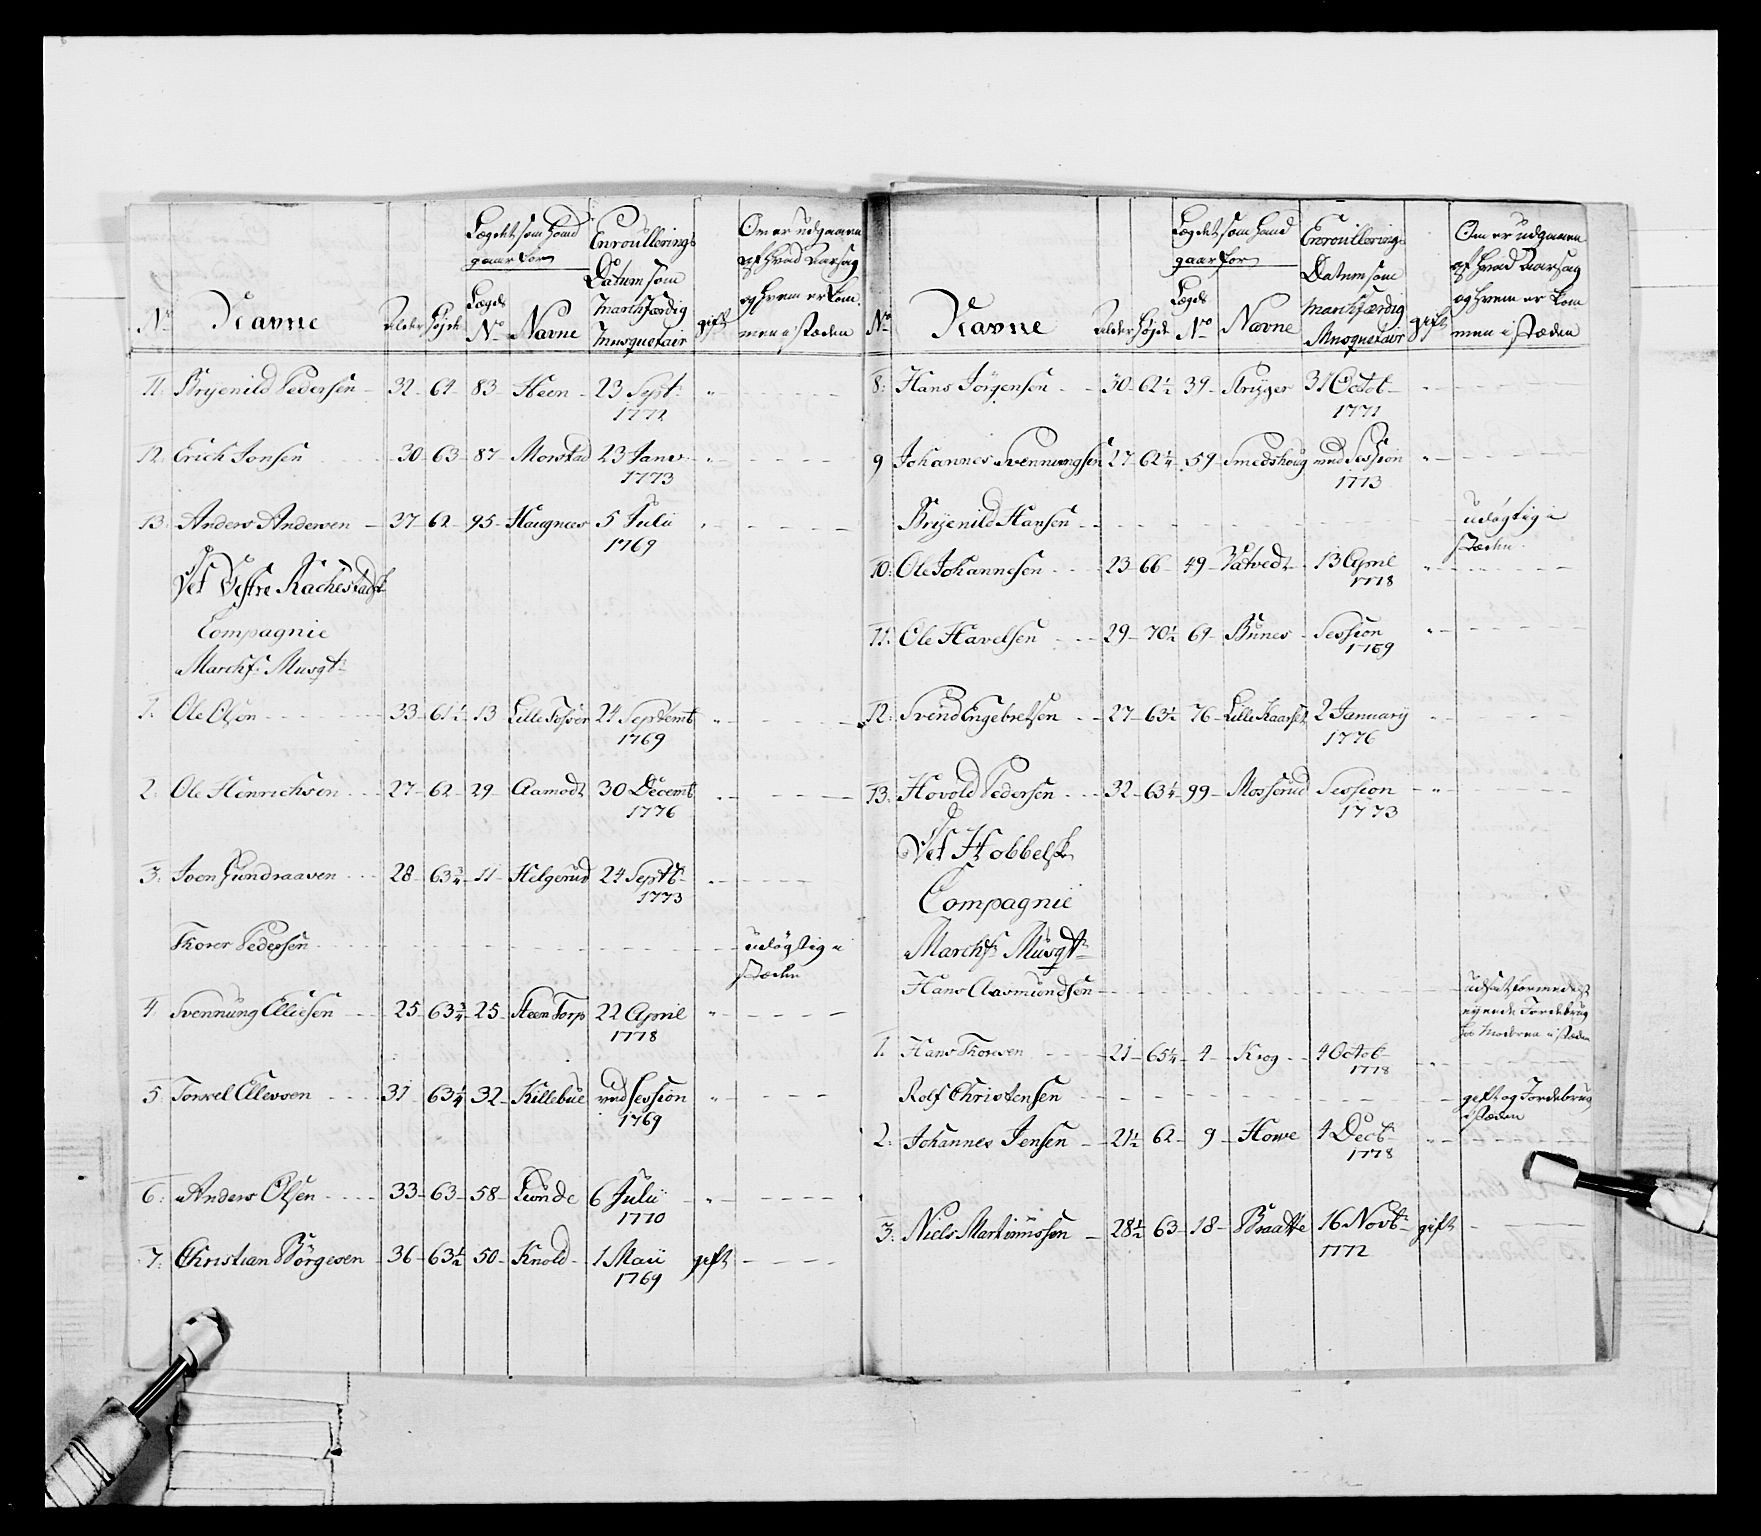 Lægdet som hand
gaar for
Enroullerings
Datum som
Marchfærdig
Musquetair
Om er udgaaen
af hvad Aarsag
og hvem er kom
men i stæden
No Navne Alder Højde Lægds No Navne gift
11. Bryenild Pedersen 32 64 83 Heen 23 Sept
1772
12 Erich Jonsen 30 63 87 Morstad 23 Janv
1773
13. Anders Andersen 37 62 95 Haugnæs 5 Julii
1769
Vet Vestre Rachestadsk
Compagnie
Marchf. Musqt
1. Ole Olsen 33 61½ 13 Lille Fosser 24 Septemb
1769
2. Ole Henrichsen 27 62 29 Aamodt 30 Decemb
1776
3. Iven Gundraaven 28 63¾ 11 Helgerud 24 Septb
1773
Thorer Pedersen udøgtig i
stæden
4 Svennung Ellefsen 25 63¾ 25 Heen Torp 22 April
1778
5 Torkel Ellevsen 31 63¼ 32 Killebue ved Session
1769
6. Anders Olsen 33 63 58 Lunde 6 Julii
1770
7. Christian Börgesen 36 63½ 50 Knold 1 Maii gift
1769
Lægdet som hand
gaar for
Enroullerings
Datum som
Marchfærdig
Musquetair
Om er udgaaen
af hvad Aarsag
og hvem er kom
men i stæden
No Navne Alder Højde Lægds No Navne gift
8. Hans Jörgensen 30 62½ 39 Stryger 31 Octob
1771
9 Johannes Svennungsen 27 62¼ 59 Smedshoug ved Session
1773
Bryenild Hansen udøgtig i
stæden
10. Ole Johannesen 23 66 49 Tatvedt 13 April
1778
11. Ole Havelsen 29 70½ 69 Bunes Session
1769
12. Svend Engebretsen 27 63½ 76 Lille Kaarset 2 January
1776
13. Hovold Pedersen 32 63¼ 99 Mosserud Session
1773
Vet Hobbelsk
Compagnie
Marchf. Musqt
Hans Aasmundsen udsat formedelst
ejende Jordebrug
hos Moderen i stæden
1. Hans Thorsen 21 65¼ 4 Krog 4 Octob
1778
Rolf Christensen gift og Jordebrug
i stæden
2. Johannes Jensen 21½ 62 9 Howe 4 Decb
1778
3. Niels Martinussen 28½ 63 18 Braatte 16 Novb gift
1772